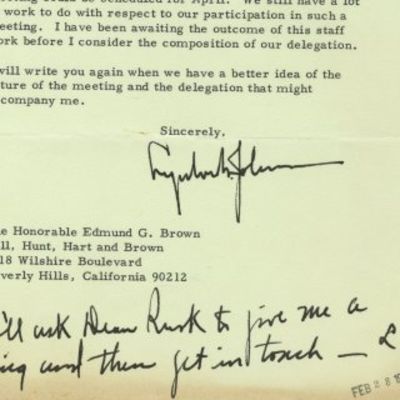 eting could be scheduled for April. We still have a lot
work to do with respect to our participation in such a
eeting. I have been awaiting the outcome of this staff
ork before I consider the composition of our delegation.
will write you again when we have a better idea of the
ture of the meeting and the delegation that might
company me.
Sincerely,
Lyndon B. Johnson
e Honorable Edmund G. Brown
ll, Hunt, Hart and Brown
18 Wilshire Boulevard
everly Hills, California 90212
'll ask Dean Rusk to give me a
and then get in touch — L
FEB 28 1